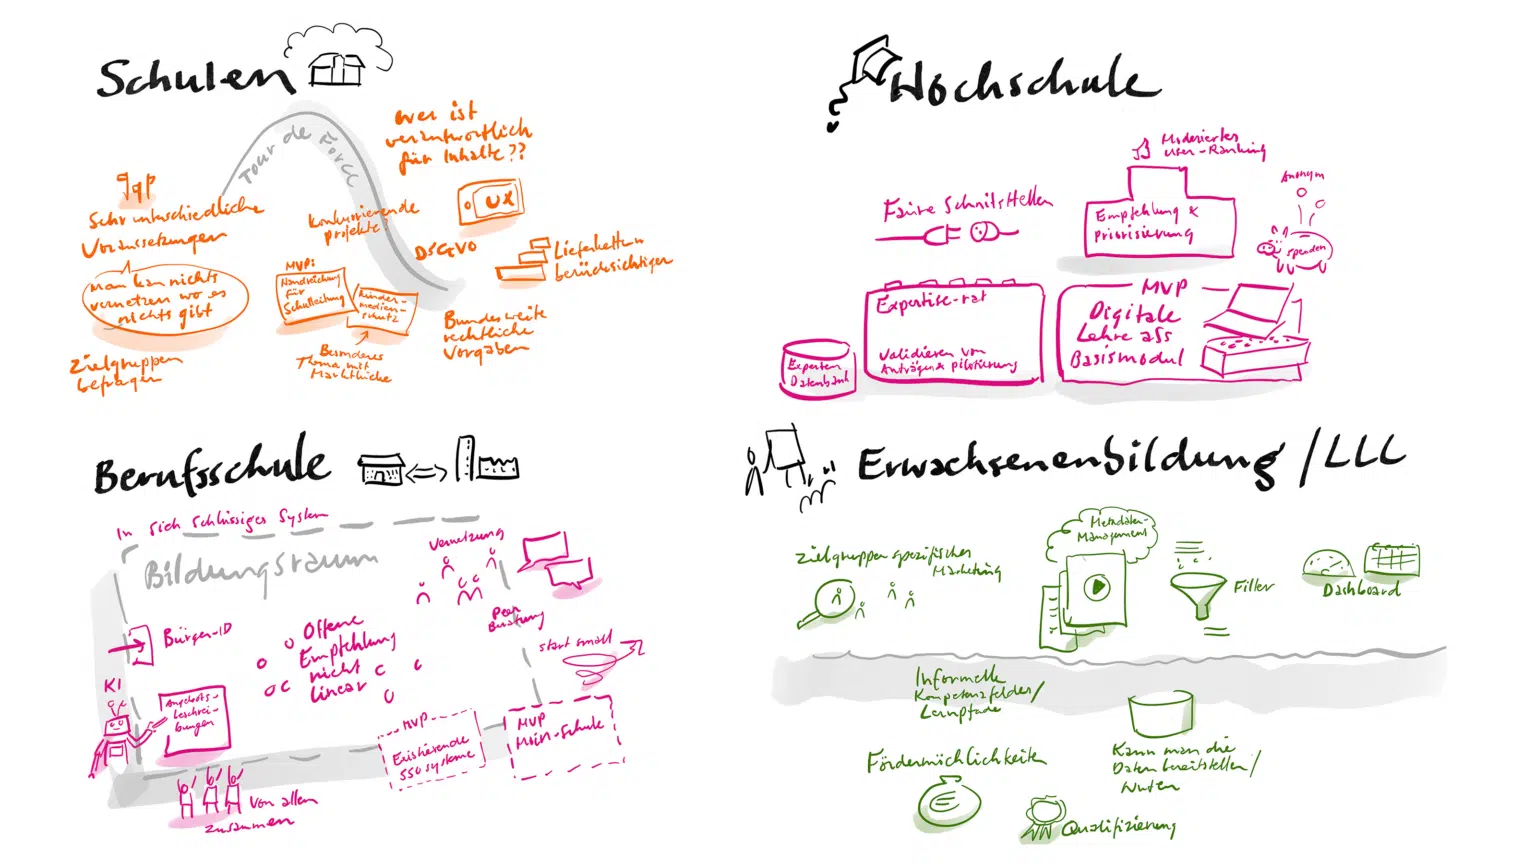 Schulen
Tour de Force
Wer ist
verantwortlich
für Inhalte??
Sehr unterschiedliche
Voraussetzungen
man kan nichts
vernetzen wo es
nichts gibt
Zielgruppen
befragen
Konkurrierende
projekte?
MVP:
Handreichung
für
Schulleitung
Kinder-
medien-
schutz
Besonderes
Thema mit
Marktlücke
UX
DSGVO
Lieferketten
berücksichtigen
Bundesweite
rechtliche
Vorgaben
Hochschule
Moderiertes
User-Ranking
Faire Schnittstellen
Empfehlung &
Priorisierung
Anonym
spenden
Expertise-rat
Validieren von
Anträgen & Pilotierung
Experten
Datenbank
MVP
Digitale
Lehre als
Basismodul
Berufsschule
In sich schlüssiges System
Bildungsraum
Vernetzung
Peer
Beratung
Bürger-ID
Offene
Empfehlung
nicht
linear
start small
KI
Angebots-
beschrei-
bungen
MVP
Existierende
SSO systeme
MVP
Moin-Schule
Von allen
zusammen
Erwachsenenbildung / LLL
Zielgruppen spezifisches
Marketing
Metadaten-
Management
Filter
Dashboard
Informelle
Kompetenzfelder/
Lernpfade
Fördermöchlichkeiten
Kann man die
Daten bereitstellen/
Nutzen
Qualifizierung